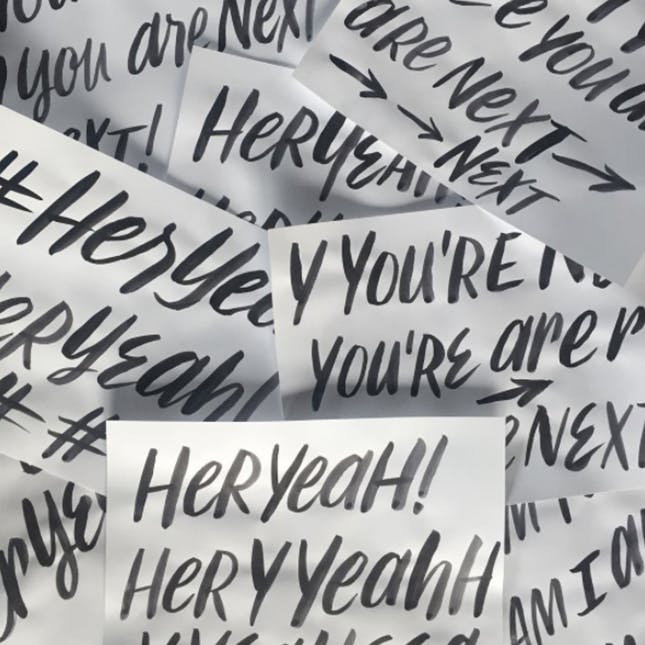 you are NexT
XT!
e you a
aRe NexT
→ → NEXT →
HeRYEAH
#HerYea
eRYEah!
# #
Y YOU'RE N
YOU'RE are r
→
NEXT
HeRYeaH!
HeRYYeahH
rYe
AM I a